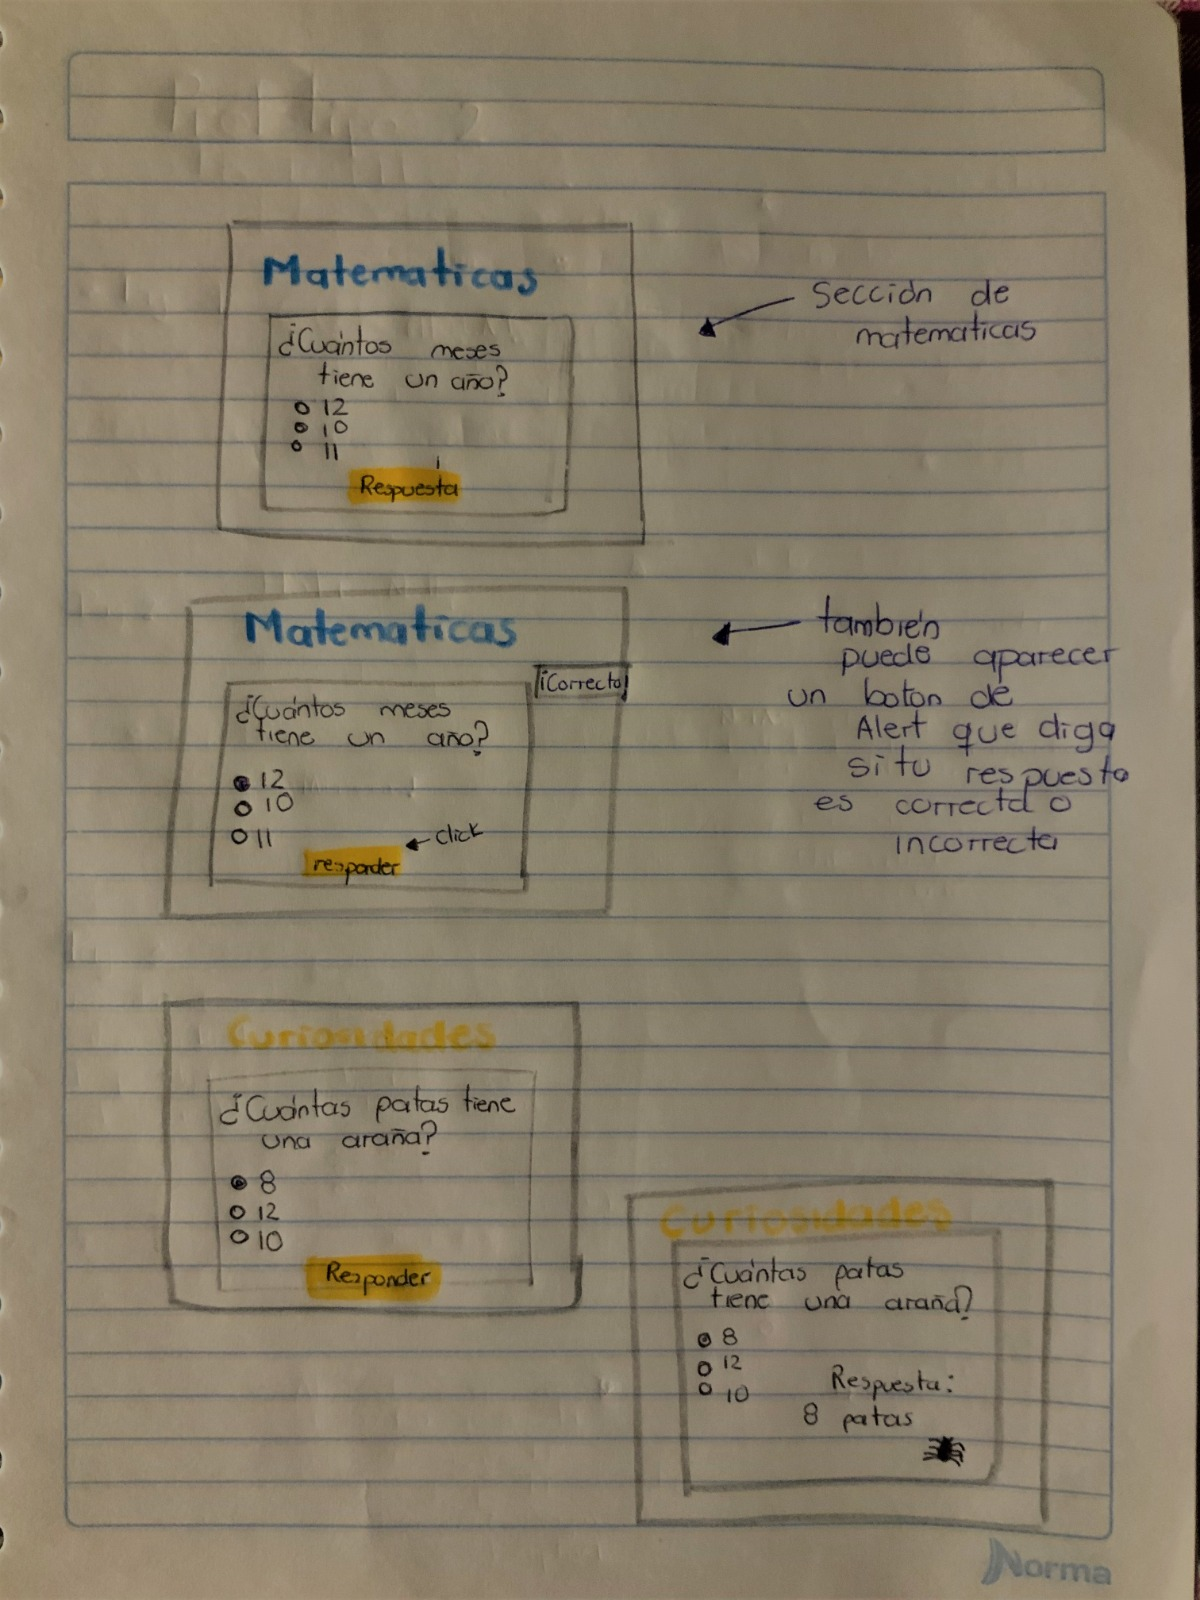 Matematicas
¿Cuántos meses
tiene un año?
12
10
11
Respuesta
Sección de
matematicas
Matematicas
¡Correcto!
¿Cuántos meses
tiene un año?
12
10
11
click
responder
también
puede aparecer
un boton de
Alert que diga
si tu respuesta
es correcta o
incorrecta
Curiosidades
¿Cuántas patas tiene
una araña?
8
12
10
Responder
Curiosidades
¿Cuántas patas
tiene una araña?
8
12
10
Respuesta:
8 patas
Norma